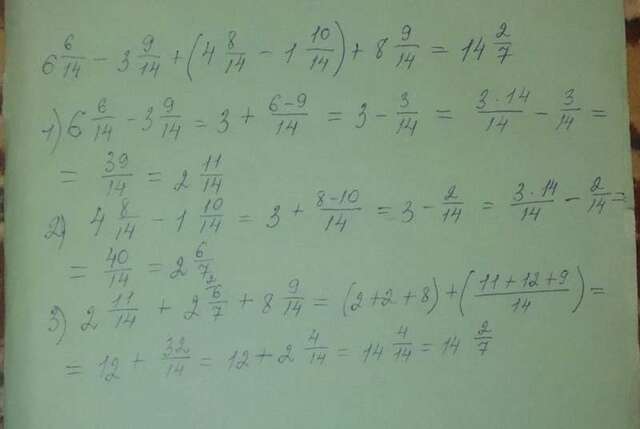 6 6/14 - 3 9/14 + (4 8/14 - 1 10/14) + 8 9/14 = 14 2/7
1) 6 6/14 - 3 9/14 = 3 + 6-9/14 = 3 - 3/14 = 3·14/14 - 3/14 =
= 39/14 = 2 11/14
2) 4 8/14 - 1 10/14 = 3 + 8-10/14 = 3 - 2/14 = 3·14/14 - 2/14 =
= 40/14 = 2 6/7
3) 2 11/14 + 2 6/7 2 + 8 9/14 = (2+2+8) + (11+12+9/14) =
= 12 + 32/14 = 12 + 2 4/14 = 14 4/14 = 14 2/7